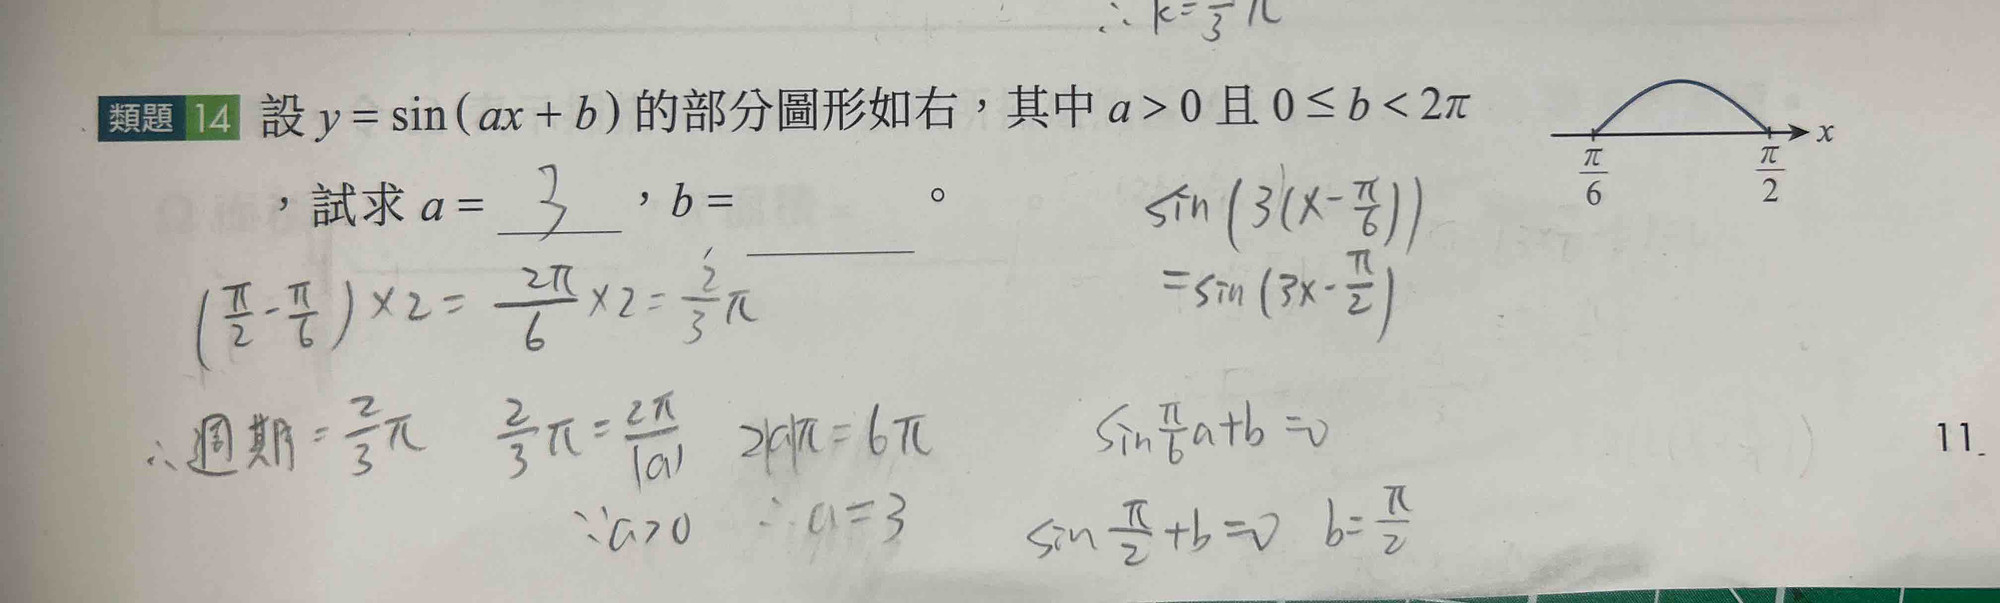 ∴ k = ‾/3 π
類題 14 設 y = sin ( ax + b ) 的部分圖形如右，其中 a > 0 且 0 ≤ b < 2π
，試求 a = 3 ，b = 。
x
π/6
π/2
sin (3(x - π/6))
= sin (3x - π/2)
(π/2 - π/6) × 2 = 2π/6 × 2 = 2/3 π
∴ 週期 = 2/3 π 2/3 π = 2π/|a| 2|a|π = 6π
∵ a > 0 ∴ a = 3
sin π/6 a + b = 0
sin π/2 + b = 0 b = π/2
11.